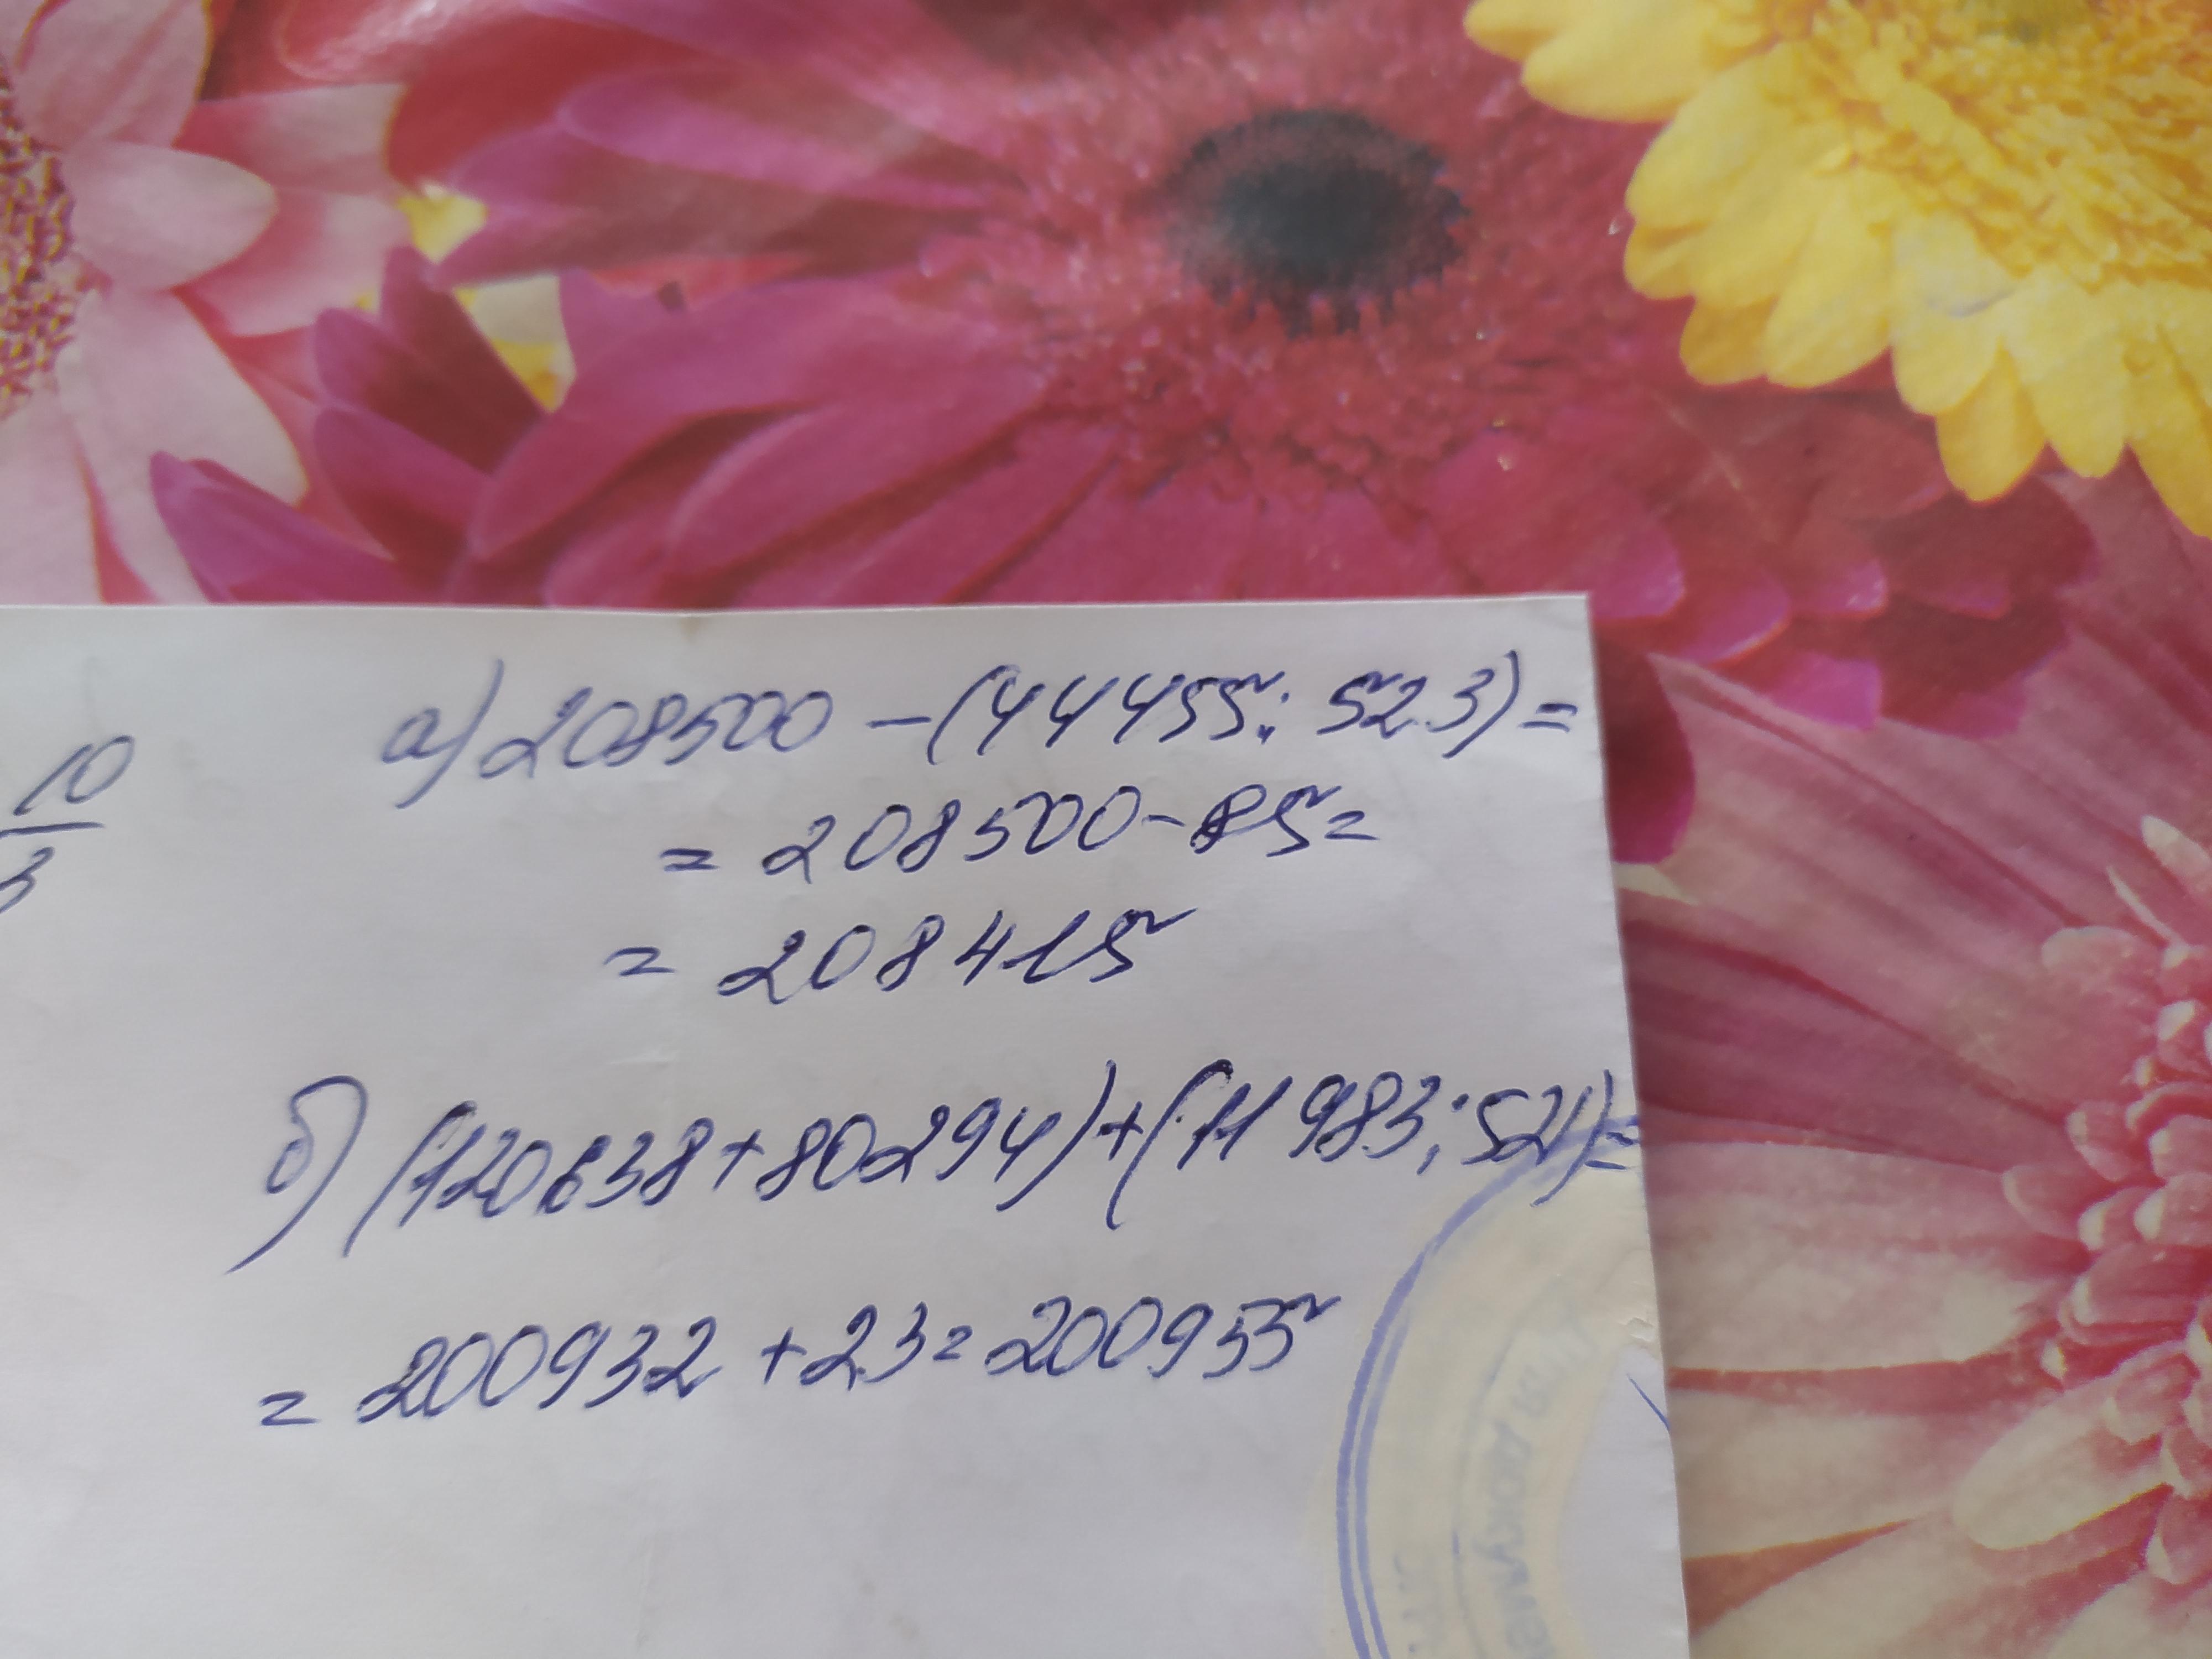 10
3
а) 208500 - (44455 : 523) =
= 208500 - 85 =
= 208415
б) (120638 + 80294) + (11983 : 521) =
= 200932 + 23 = 200955